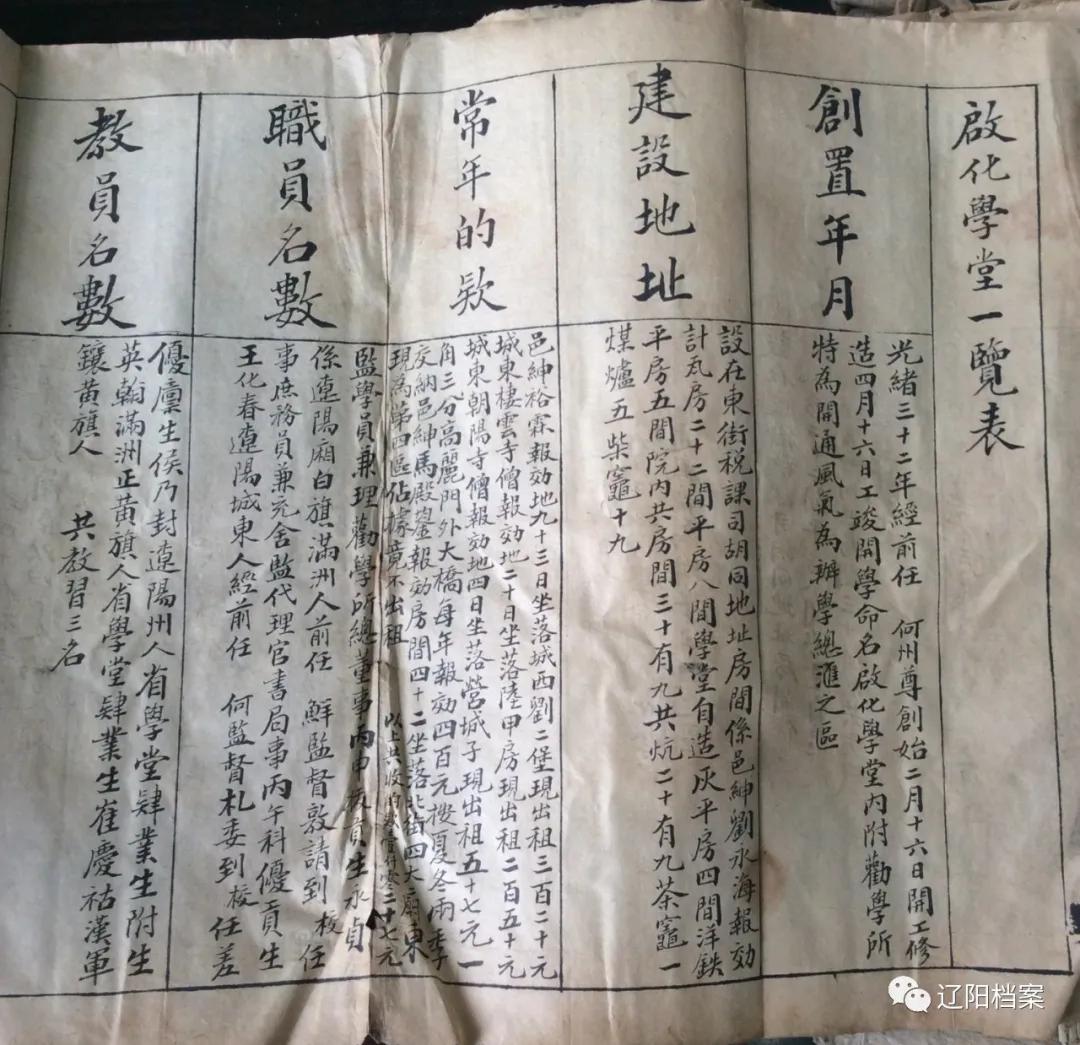 啟化學堂一覽表
創置年月
光緒三十二年經前任 何州尊創始二月十六日開工修
造四月十六日工竣開學命名啟化學堂內附勸學所
特為開通風氣為辦學總滙之區
建設地址
設在東街税課司胡同地址房間係邑紳劉永海報効
計瓦房二十二間平房八間學堂自造灰平房四間洋鉄
平房五間院內共房間三十有九共炕二十有九茶竈一
煤爐五柴竈十九
常年的欵
邑紳裕霖報効地九十三日坐落城西劉二堡現出租三百二十元
城東棲雲寺僧報効地二十日坐落陸甲房現出租二百五十元
城東朝陽寺僧報効地四日坐落營城子現出租五十七元一
角三分高麗門外大橋每年報効四百元按夏冬兩季
交納邑紳馬殿鎏報効房間四十二坐落北街四大廟東
現為第四區佔據竟不出租 以上共收的欵壹仟零二十七元
職員名數
監學員兼理勸學所總董事丙申拔貢生永貞
係遼陽廂白旗滿洲人前任 鮮監督敦請到校任
事庶務員兼充舍監代理官書局事丙午科優貢生
王化春遼陽城東人經前任 何監督札委到校任差
教員名數
優廩生侯乃封遼陽州人省學堂肄業生附生
英翰滿洲正黃旗人省學堂肄業生崔慶祜漢軍
鑲黃旗人 共教習三名
辽阳档案